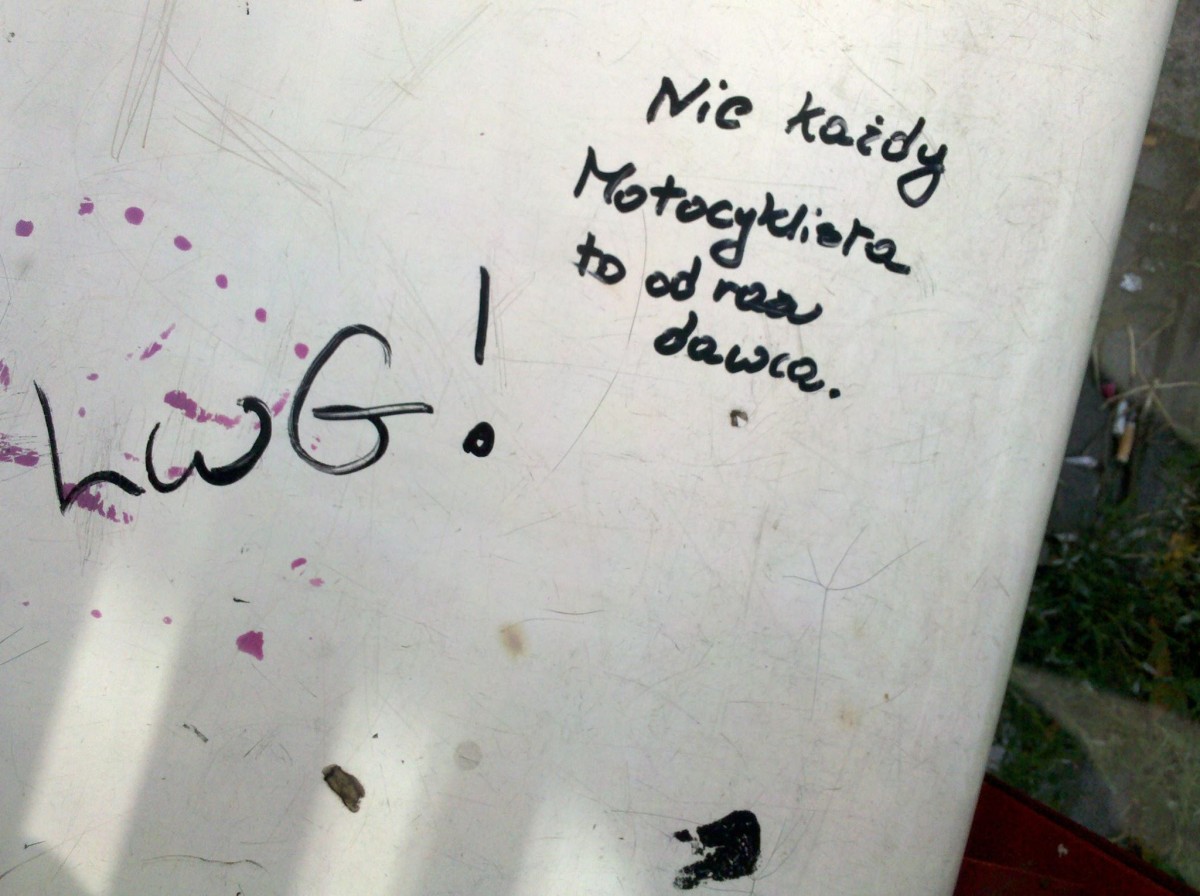 Nie każdy
Motocyklista
to od razu
dawca.
LWG!